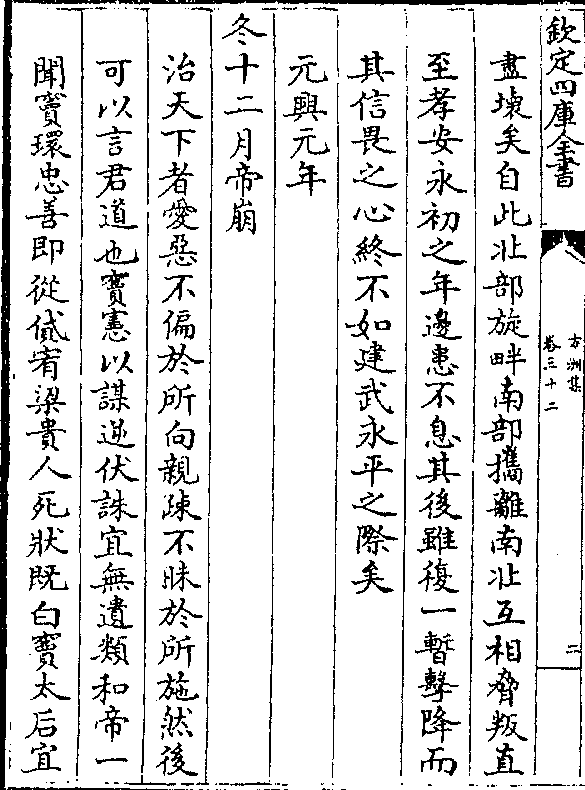 欽定四庫全書
方洲集
卷三十二
二
盡壞矣自此北部旋畔南部攜離南北互相脅叛直
至孝安永初之年邊患不息其後雖複一暫擊降而
其信畏之心終不如建武永平之際矣
元興元年
冬十二月帝崩
治天下者愛惡不偏於所向親疎不昧於所施然後
可以言君道也竇憲以謀逆伏誅宜無遺類和帝一
聞竇環忠善即從貸宥梁貴人死狀既白竇太后宜